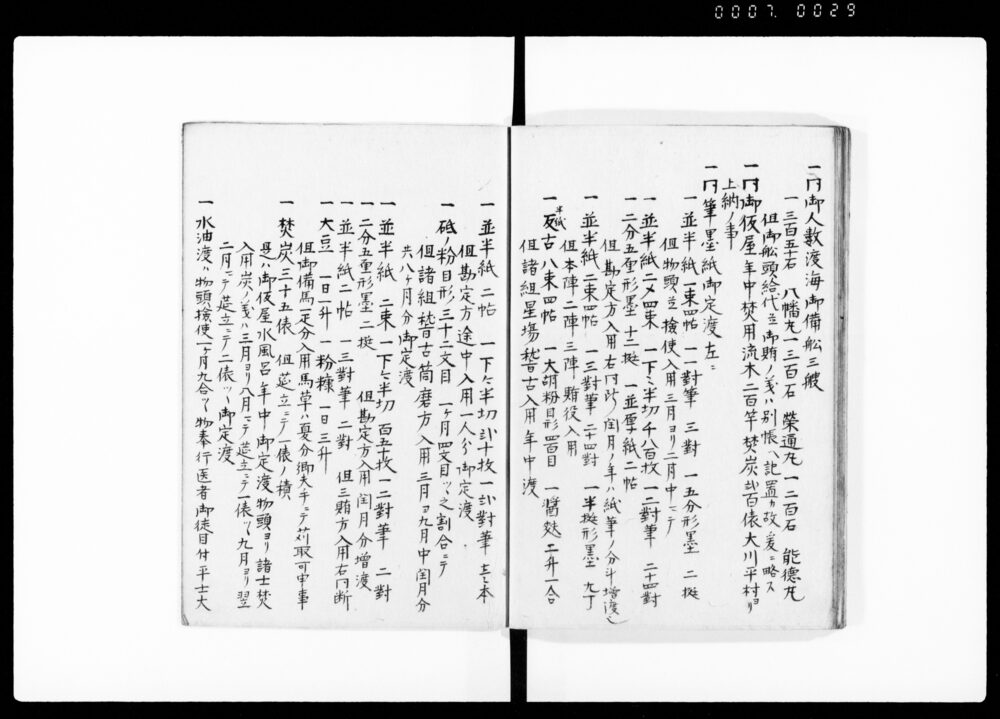 0007. 0029
一同御人数渡海御備船三艘
一三百五十石 八幡丸 一三百石 榮通丸 一二百石 能徳丸
但御船頭給代並御賄ノ義ハ別帳ヘ記置力故爰ニ略ス
一同御仮屋年中焚用流木二百竿焚炭弐百俵大川平村ヨリ
上納ノ事
一同筆墨紙御定渡左ニ
一並半紙一束四帖 一一對筆 三對 一五分形墨 二挺
但物頭並検使入用三月ヨリ二月中ニテ
一並半紙二〆四束 一下々半切千八百枚 一二對筆 二十四對
一二分五厘形墨 十二挺 一並厚紙二帖
但勘定方入用右同断閏月ノ年ハ紙筆ノ分斗増渡之
一並半紙二束四帖 一三對筆二十四對 一半挺形墨 九丁
但本陣二陣三陣賄役入用
一半紙反古八束四帖 一大胡粉目形四百目 一醤麩二升一合
但諸組星場稽古入用年中渡
一並半紙二帖 一下々半切弐十枚 一弐對筆 壱本
但勘定方途中入用一人分御定渡
一砥ノ粉目形三十二文目 一ヶ月四文目ツヽ之割合ニテ
但諸組稽古筒磨方入用三月ヨ九月中閏月分
共八ヶ月分御定渡
一並半紙 二束 一下々半切 百五十枚 一二對筆 二對
一二分五厘形墨 二挺 但勘定方入用閏月分増渡
一並半紙二帖 一三對筆 二對 但三賄方入用右同断
一大豆 一日一升 一粉糠 一日三升
但御備馬一疋分入用馬草ハ夏分郷夫手ニテ苅取可申事
一焚炭三十五俵 但莚立ニテ一俵ノ積
是ハ御仮屋水風呂年中御定渡物頭ヨリ諸士焚
入用炭ノ義ハ三月ヨリ八月ニテ莚立ニテ一俵ツヽ九月ヨリ翌
二月ニテ莚立ニテ二俵ツヽ御定渡
一水油渡ハ物頭検使一ヶ月九合ツヽ物奉行医者御徒目付平士大